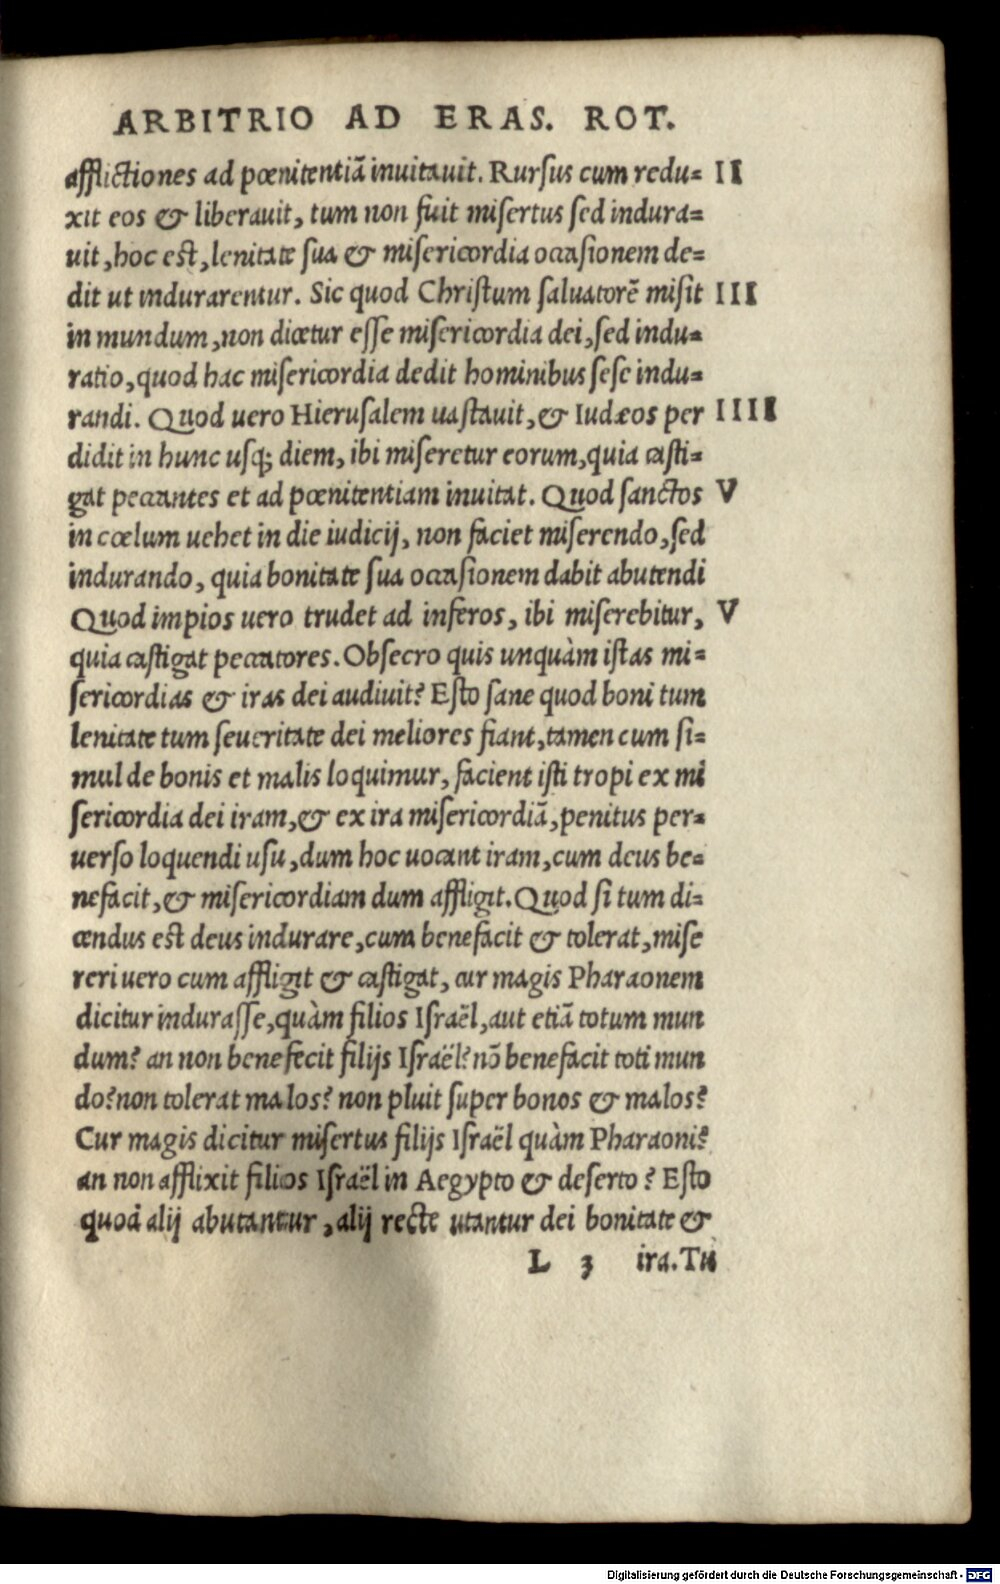 ARBITRIO AD ERAS. ROT.
afflictiones ad pœnitentiã inuitauit. Rursus cum redu= II
xit eos & liberauit, tum non fuit misertus sed indura=
uit, hoc est, lenitate sua & misericordia occasionem de=
dit ut indurarentur. Sic quod Christum saluatorẽ misit III
in mundum, non dicetur esse misericordia dei, sed indu=
ratio, quod hac misericordia dedit hominibus sese indu=
randi. Quod uero Hierusalem uastauit, & Iudæos per IIII
didit in hunc usq; diem, ibi miseretur eorum, quia casti=
gat peccantes et ad pœnitentiam inuitat. Quod sanctos V
in cœlum uehet in die iudicij, non faciet miserendo, sed
indurando, quia bonitate sua occasionem dabit abutendi
Quod impios uero trudet ad inferos, ibi miserebitur, V
quia castigat peccatores. Obsecro quis unquàm istas mi=
sericordias & iras dei audiuit? Esto sane quod boni tum
lenitate tum seueritate dei meliores fiant, tamen cum si=
mul de bonis et malis loquimur, facient isti tropi ex mi
sericordia dei iram, & ex ira misericordiã, penitus per=
uerso loquendi usu, dum hoc uocant iram, cum deus be=
nefacit, & misericordiam dum affligit. Quod si tum di=
cendus est deus indurare, cum benefacit & tolerat, mise
reri uero cum affligit & castigat, cur magis Pharaonem
dicitur indurasse, quàm filios Israël, aut etiã totum mun
dum? an non benefecit filijs Israël? nõ benefacit toti mun
do? non tolerat malos? non pluit super bonos & malos?
Cur magis dicitur misertus filijs Israël quàm Pharaoni?
an non afflixit filios Israël in Aegypto & deserto? Esto
quod alij abutantur, alij recte utantur dei bonitate &
L 3 ira. Tũ
Digitalisierung gefördert durch die Deutsche Forschungsgemeinschaft - DFG